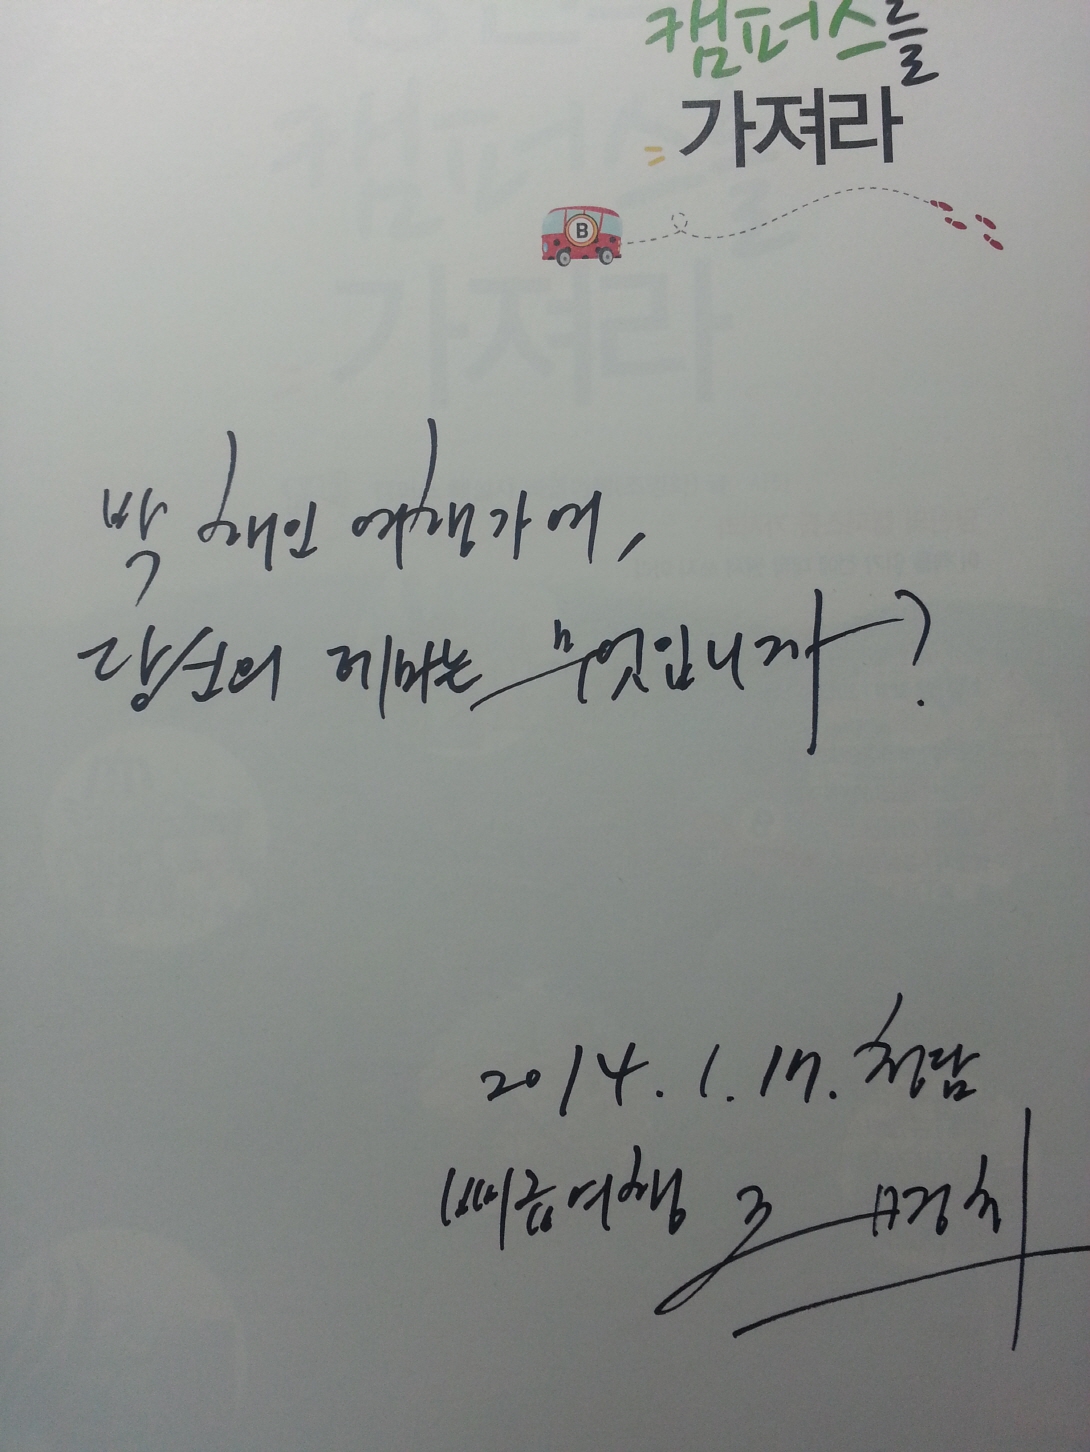 캠퍼스를
가져라
B
박해인 여행가여,
당신의 테마는 무엇입니까?
2014. 1. 17. 청담
빼곱여행 조